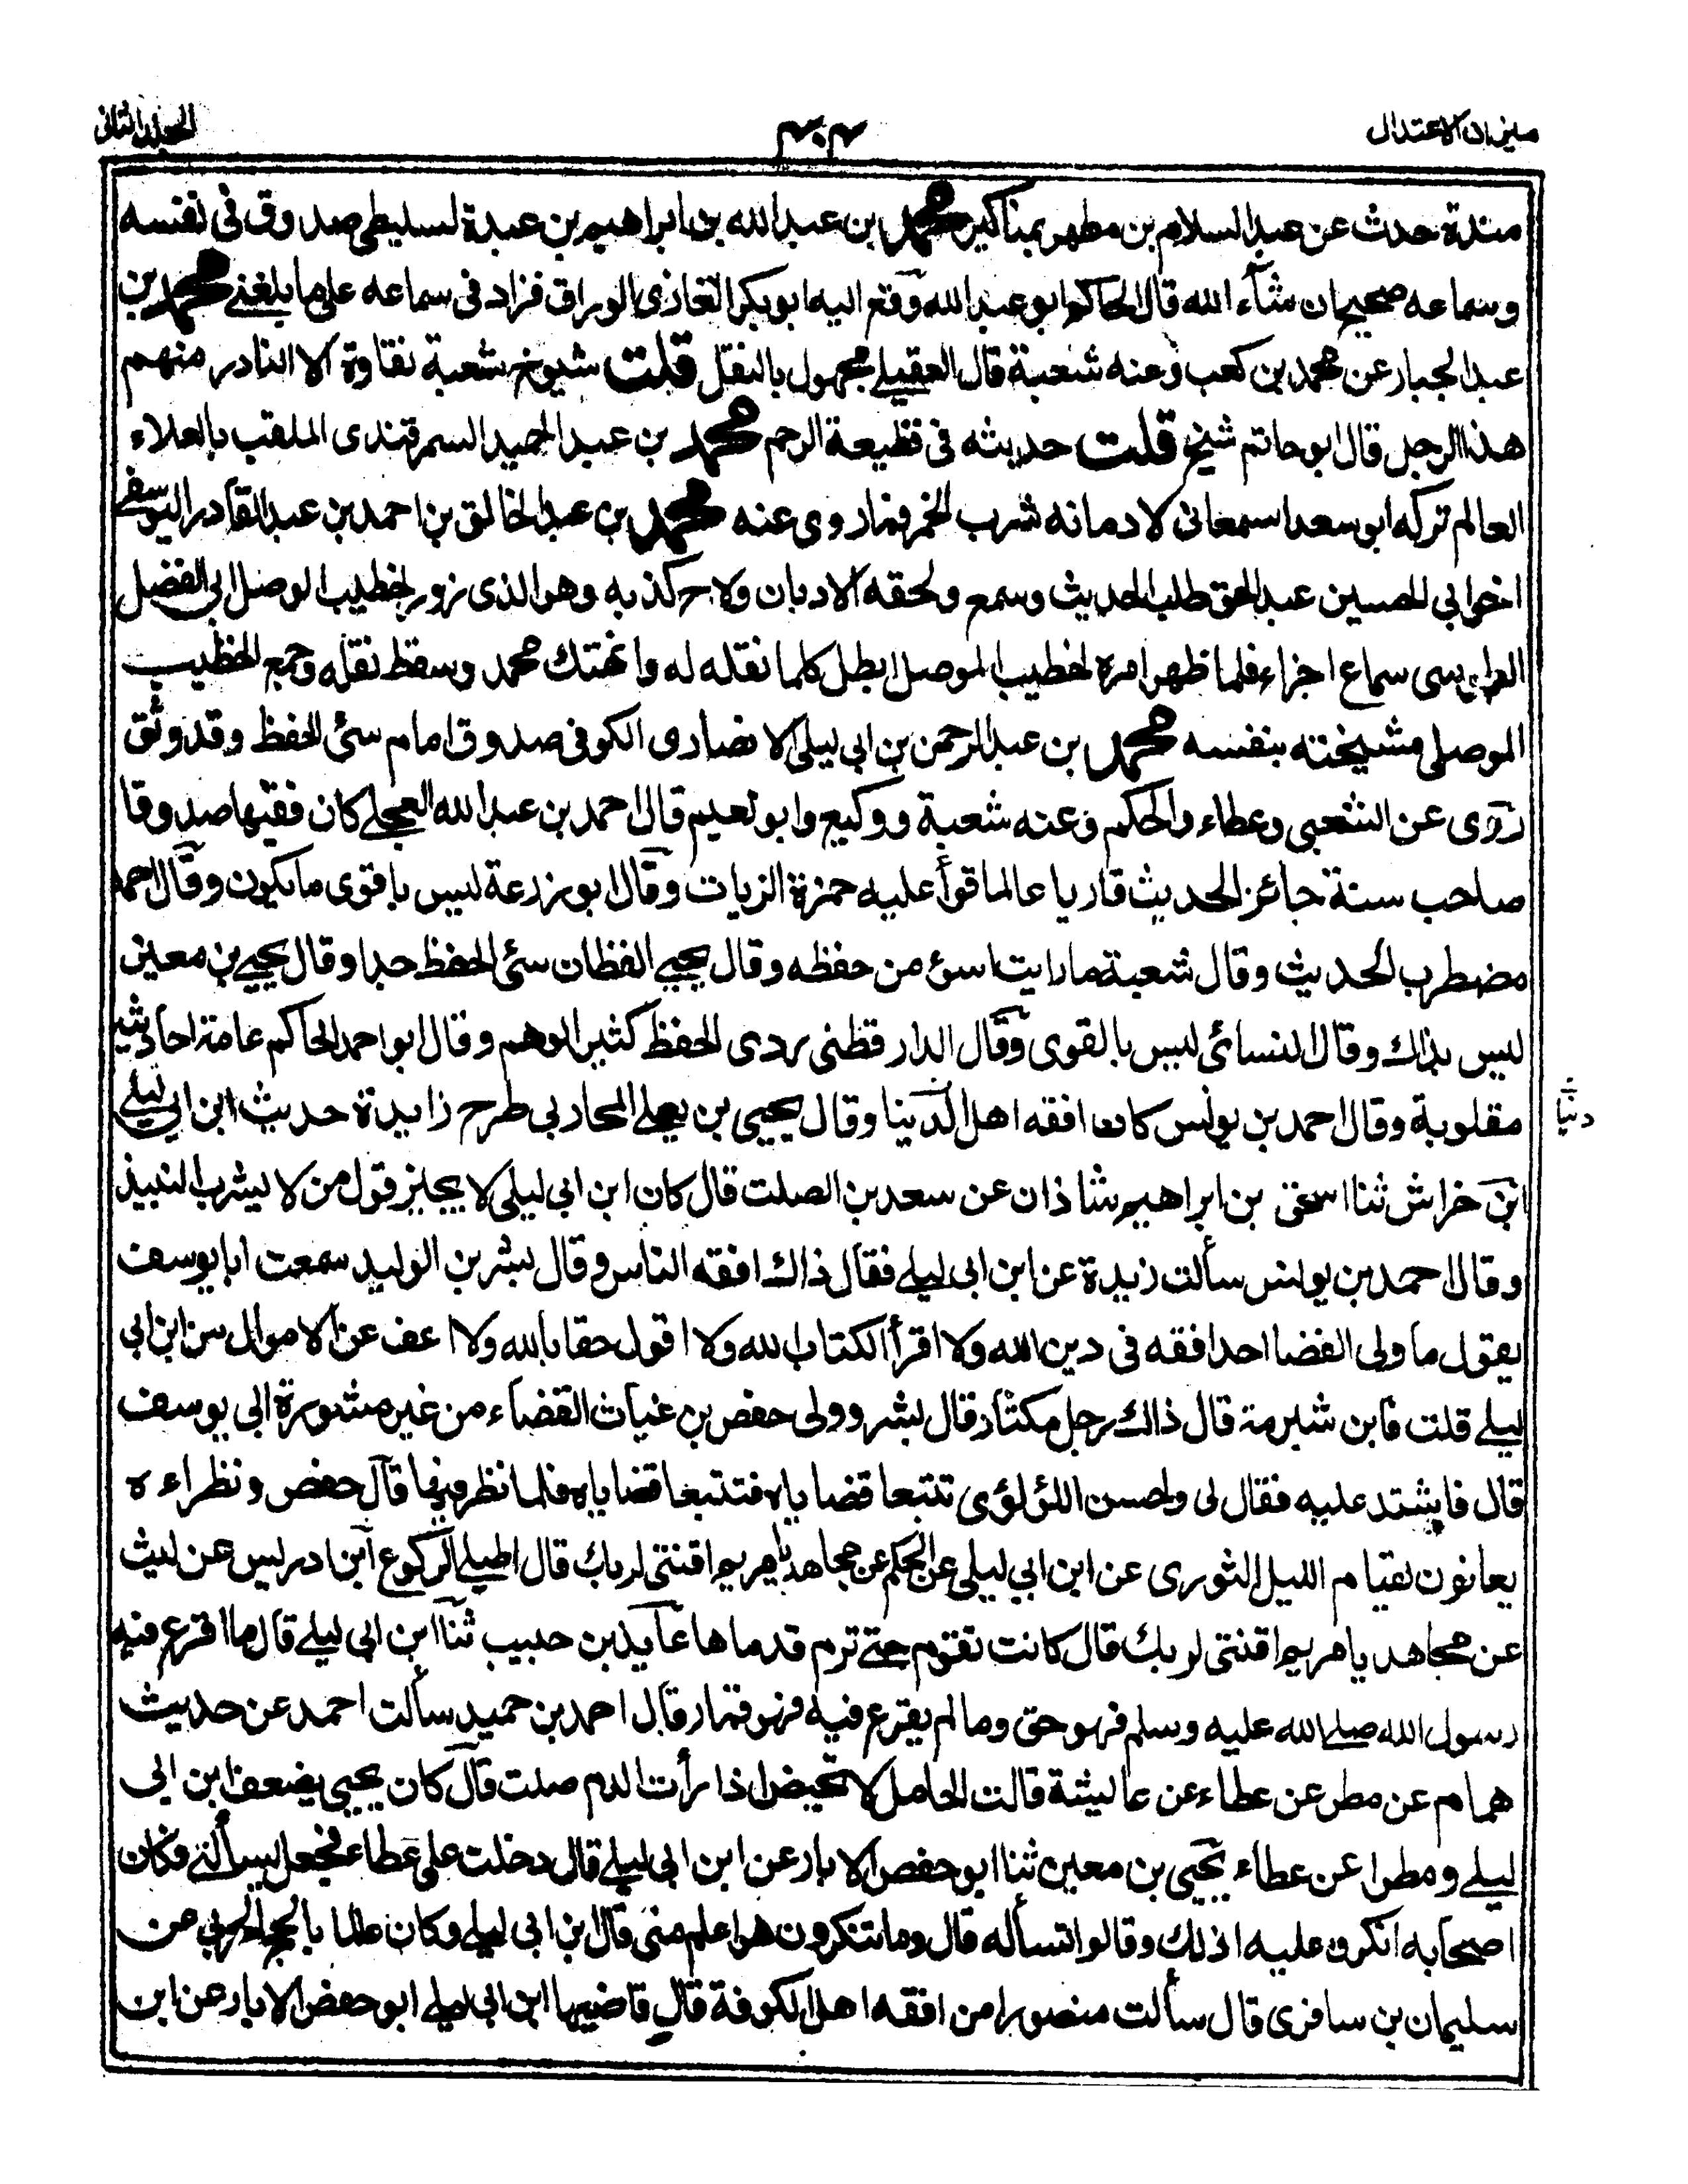 ميزان الاعتدال
الجلد الثانى
مندة حدث عن عبد السلام بن مطهر بمناكير محمد بن عبد الله بن ابراهيم بن عبدة السليطى صدوق فى نفسه
وسماعه صحيح ان شآء الله قال الحاكم ابو عبد الله وقع اليه ابو بكر الغازى الوراق فزاد فى سماعه على ما بلغنے محمد بن
عبد الجبار عن محمد بن كعب وعنه شعبة قال العقيلے مجهول بالنقل قلت شيوخ شعبة نقاوة الا النادر منهم
هذا الرجل قال ابو حاتم شيخ قلت حديثه فى قطيعة الرحم محمد بن عبد الحميد السمرقندى الملقب بالعلاء
العالم تركه ابو سعد اسمعانى لادمانه شرب الخمر فما روى عنه محمد بن عبد الخالق بن احمد بن عبد القادر اليوسفے
اخو ابى الحسين عبد الحق طلب الحديث وسمع ولحقه الادبان ولاح كذبه وهو الذى زور لخطيب الموصل ابى الفضل
الطوسى سماع اجزاء فلما ظهر امره لخطيب الموصل ابطل كلما نقله له وانهتك محمد وسقط نقله وجمع الخطيب
الموصلى مشيخته بنفسه محمد بن عبد الرحمن بن ابى ليلى الانصارى الكوفى صدوق امام سئ الحفظ وقد وثق
روى عن الشعبى وعطاء والحكم وعنه شعبة ووكيع وابو نعيم قال احمد بن عبد الله العجلے كان فقيها صدوقا
صاحب سنة جائز الحديث قاريا عالما قرأ عليه حمزة الزيات وقال ابو زرعة ليس باقوى ما يكون وقال احمد
مضطرب الحديث وقال شعبة ما رايت اسوء من حفظه وقال يحيے القطان سئ الحفظ جدا وقال يحيے بن معين
ليس بذاك وقال النسائى ليس بالقوى وقال الدارقطنى ردى الحفظ كثير الوهم وقال ابو احمد الحاكم عامة احاديثه
مقلوبة وقال احمد بن يونس كان افقه اهل الدنيا وقال يحيى بن يعلے المحاربى طرح زايدة حديث ابن ابى ليلے
دنيا
ابن خراش ثنا اسحق بن ابراهيم شاذان عن سعد بن الصلت قال كان ابن ابى ليلى لا يجيز قول من لا يشرب النبيذ
وقال احمد بن يونس سألت زيدة عن ابن ابى ليلے فقال ذاك افقه الناس وقال بشر بن الوليد سمعت ابا يوسف
يقول ما ولى القضا احد افقه فى دين الله ولا اقرأ الكتاب لله ولا اقول حقا بالله ولا اعف عن الاموال من ابن ابى
ليلے قلت فابن شبرمة قال ذاك رجل مكثار قال بشر وولى حفص بن غياث القضآء من غير مشورة ابى يوسف
قال فاشتد عليه فقال لى ولحسن اللؤلؤى تتبعا قضاياه فتتبعا قضاياه فلما نظر فيها قال حفص ونظراءه
يعانون بقيام الليل الثورى عن ابن ابى ليلى عن الحكم عن مجاهد يا مريم اقنتى لربك قال اطيلے الركوع ابن ادريس عن ليث
عن مجاهد يا مريم اقنتى لربك قال كانت تقوم حتے ترم قدماها عآيذ بن حبيب ثنا ابن ابى ليلے قال ما اقرع فيه
رسول الله صلے الله عليه وسلم فهو حق وما لم يقرع فيه فهو قمار قال احمد بن حميد سألت احمد عن حديث
همام عن مطر عن عطاء عن عائشة قالت الحامل لا تحيض اذا رأت الدم صلت قال كان يحيى يضعف ابن ابى
ليلے ومطرا عن عطاء يحيى بن معين ثنا ابو حفص الابار عن ابن ابى ليلے قال دخلت على عطاء فجعل يسألنے فكان
اصحابه انكروا عليه ذلك وقالوا تسأله قال وما تنكرون هو اعلم منى قال بن ابى ليلے وكان عالما بالحج الحربى عن
سليمان بن سافرى قال سألت منصورا من افقه اهل الكوفة قال قاضيها ابن ابى ليلے ابو حفص الابار عن ابن